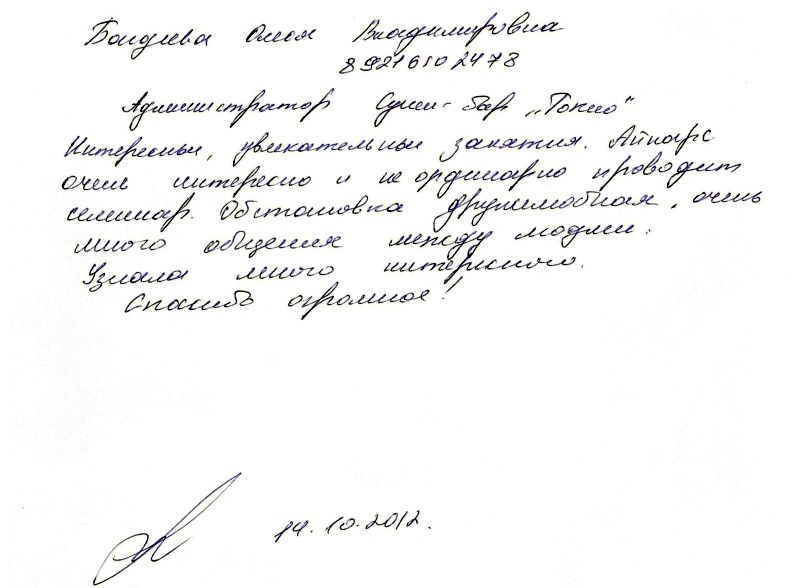 Олеся Владимировна
89216502478
Администратор Суши-бар "Токио"
Интересные, увлекательные занятия. Айнарс
очень интересно и не ординарно проводит
семинар. Обстановка дружелюбная, очень
много общения между людьми.
Узнала много интересного.
Спасибо огромное!
14.10.2012.